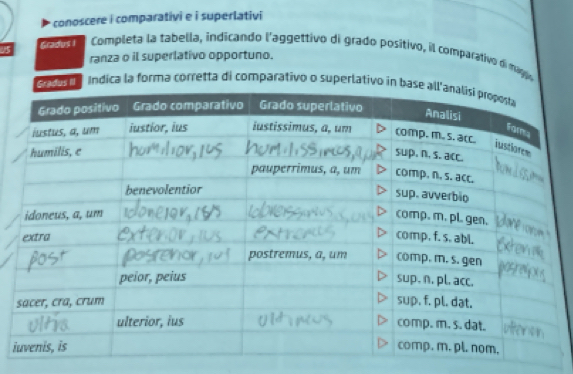 conoscere i comparativi e i superlativi
US
Gradus I Completa la tabella, indicando l'aggettivo di grado positivo, il comparativo di maggio
ranza o il superlativo opportuno.
Gradus II Indica la forma corretta di comparativo o superlativo in base all'analisi proposta
Grado positivo Grado comparativo Grado superlativo Analisi Forma
iustus, a, um iustior, ius iustissimus, a, um comp. m. s. acc. iustiorem
humilis, e humilior, ius sup. n. s. acc.
pauperrimus, a, um comp. n. s. acc.
benevolentior sup. avverbio
idoneus, a, um comp. m. pl. gen.
extra exterior, ius extremus comp. f. s. abl.
post posterior, ius postremus, a, um comp. m. s. gen
peior, peius sup. n. pl. acc.
sacer, cra, crum sup. f. pl. dat.
ultra ulterior, ius ultimus comp. m. s. dat.
iuvenis, is comp. m. pl. nom.